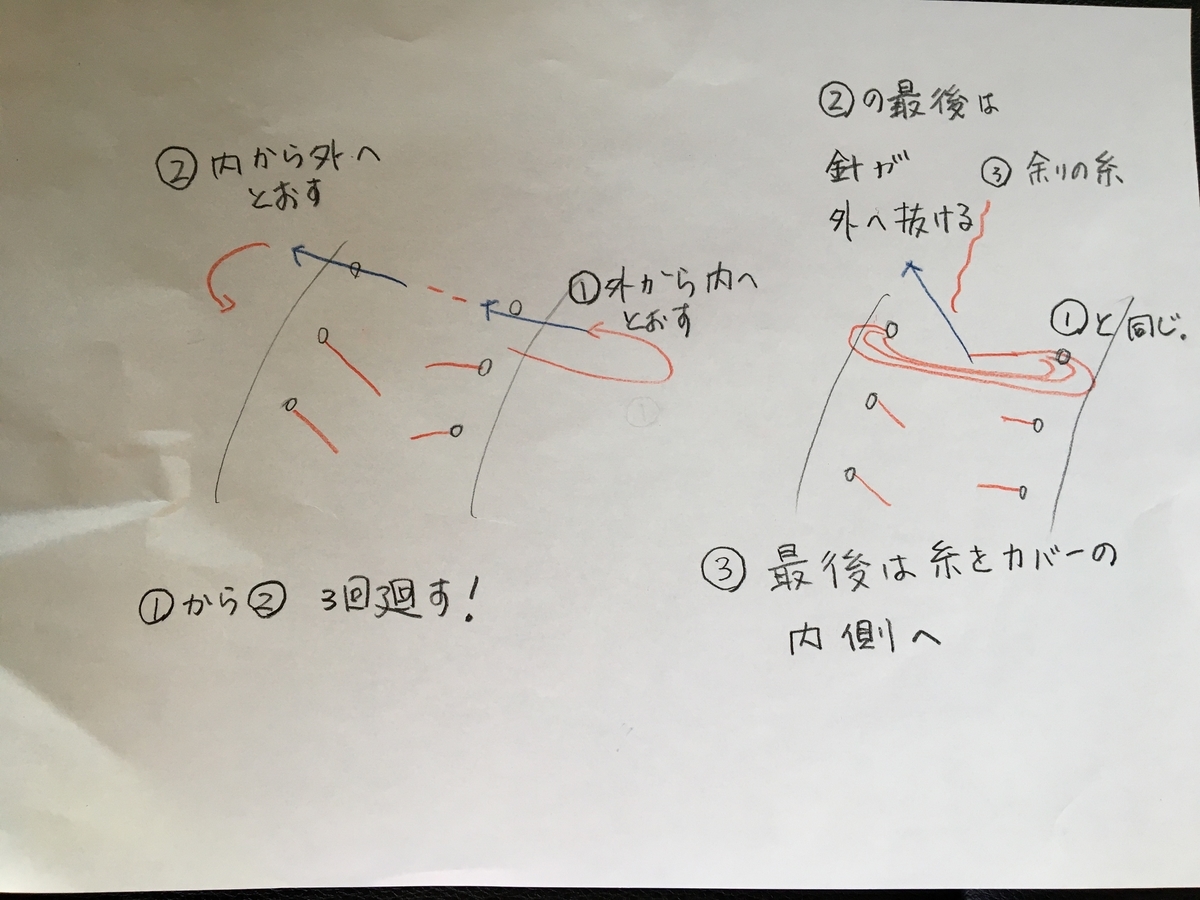 ②内から外へ
とおす
①外から内へ
とおす
①から② 3回廻す!
②の最後は
針が
外へ抜ける
③余りの糸
①と同じ.
③最後は糸をカバーの
内側へ
①